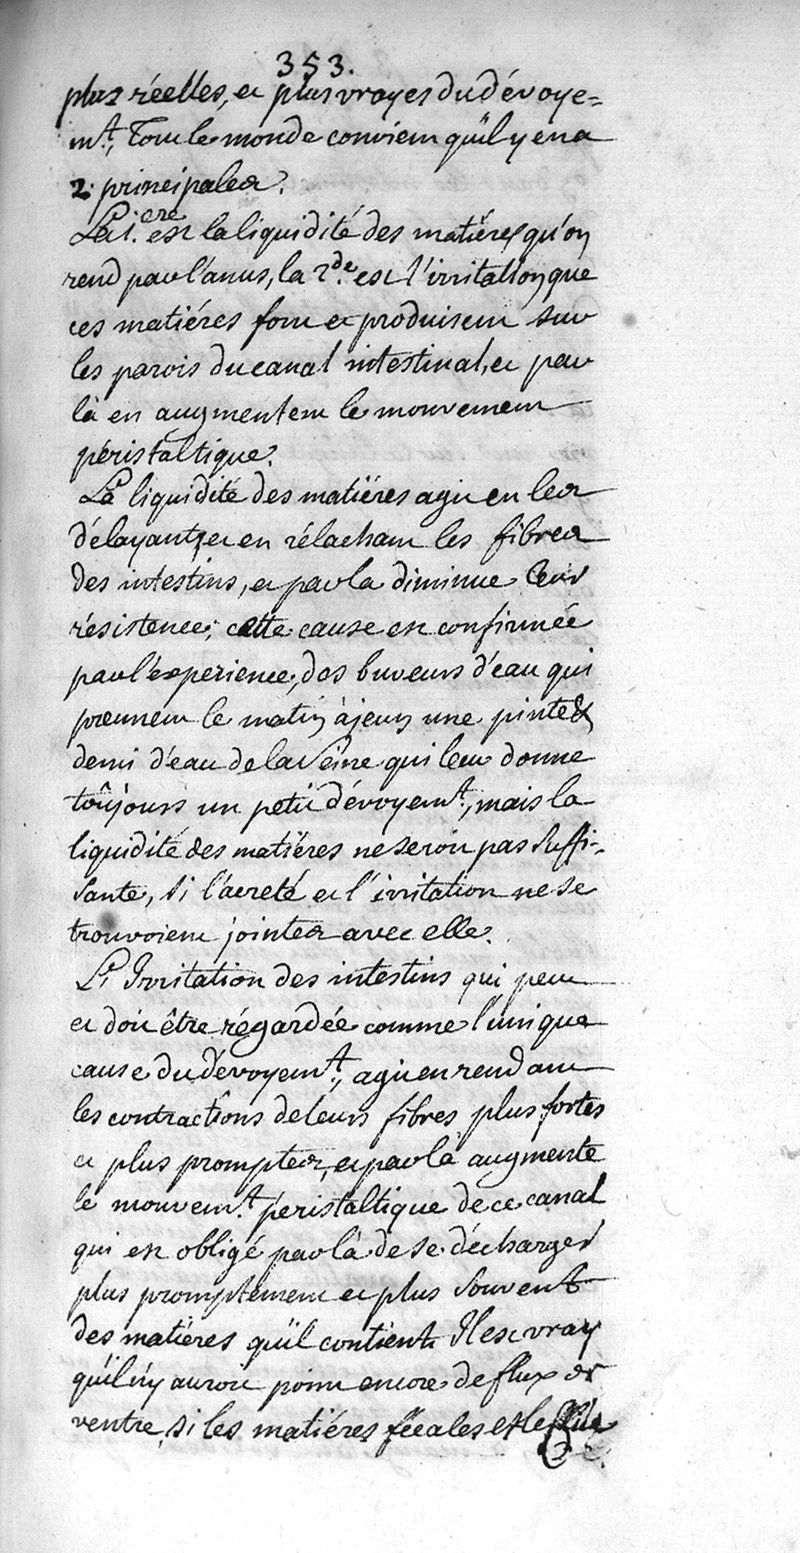 353.
plus réelles, et plus vrayes du dévoye=
m.t, Tout le monde convient qu'il y en a
2. principales.
La 1.ere est la liquidité des matiéres qu'on
rend par l'anus, la 2.de est l'irritation que
ces matiéres font et produisent sur
les parois du canal intestinal, et par
là en augmentent le mouvement
péristaltique.
La liquidité des matiéres agit en les
délayant, et en rélachant les fibres
des intestins, et par la diminue leur
résistence; cette cause est confirmée
par l'experience, des buveurs d'eau qui
prennent le matin à jeun une pinte &
demi d'eau de la Seine qui leur donne
toûjours un petit dévoyem.t, mais la
liquidité des matiéres ne seroit pas suffi-
sante, si l'acreté et l'irritation ne se
trouvoient jointes avec elle.
L'Irritation des intestins qui peut
et doit être régardée comme l'unique
cause du dévoyem.t, agit en rendant
les contractions de leurs fibres plus fortes
et plus promptes, et par là augmente
le mouvem.t péristaltique de ce canal
qui est obligé par là de se décharger
plus promptement et plus souvent
des matiéres qu'il contient. Il est vray
qu'il n'y auroit point encore de flux de
ventre, si les matiéres fécales et